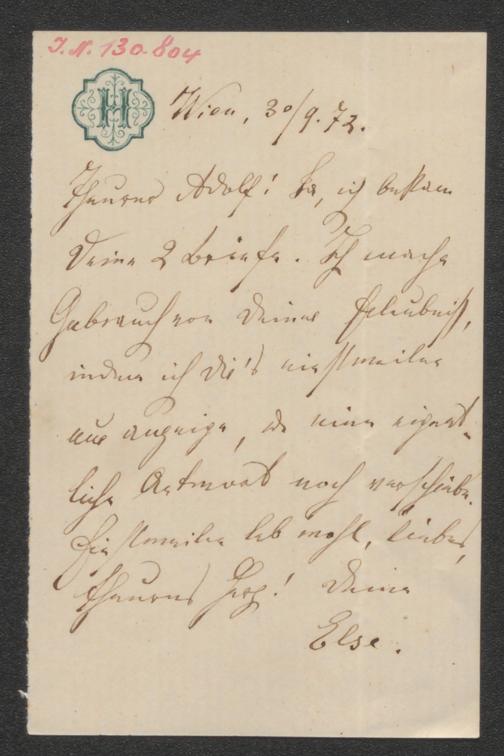 J.N. 130.804
H
Wien, 30/9.73.
Theurer Adolf! Ja, ich bekam
Deine 2 Briefe. Ich mache
Gebrauch von Deiner Erlaubniß,
indem ich dir's einstweilen
nur anzeige, u. eine eigent-
liche Antwort noch verschiebe.
Einstweilen leb wohl, liebes,
theures Herz! Deine
Else.